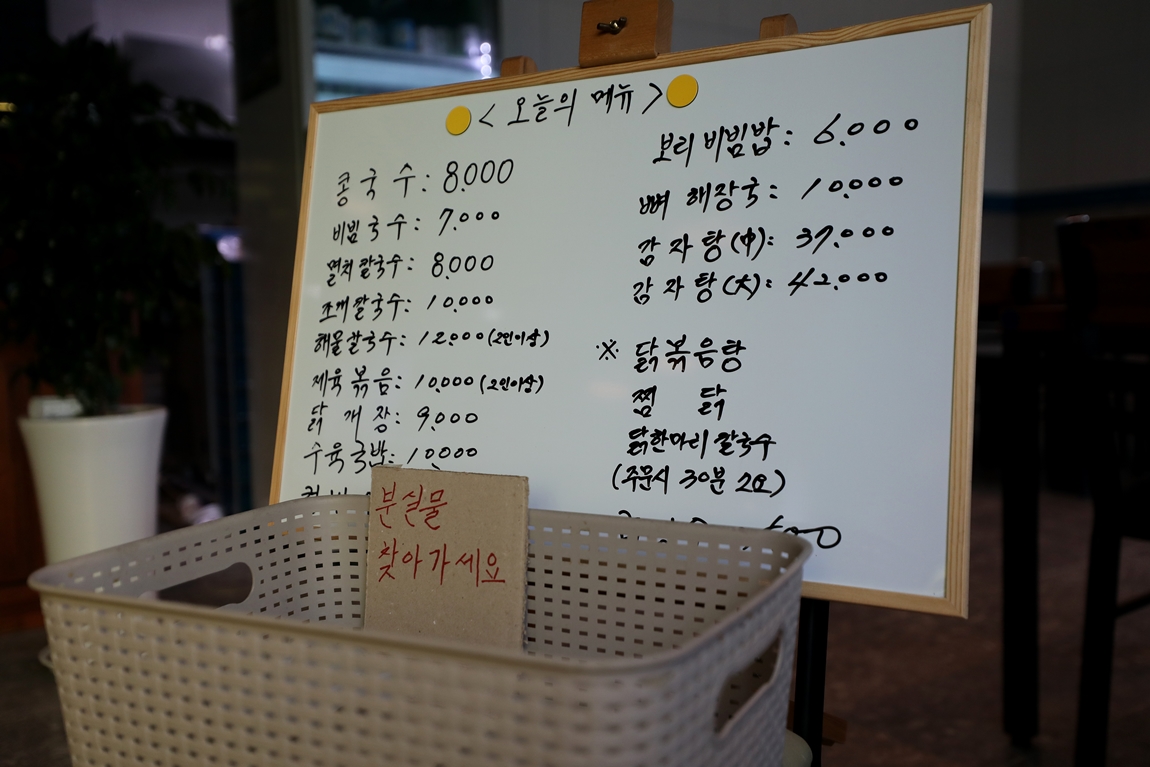 < 오늘의 메뉴 >
콩국수: 8.000
비빔국수: 7.000
멸치칼국수: 8.000
조개칼국수: 10.000
해물칼국수: 12.000 (2인이상)
제육볶음: 10.000 (2인이상)
닭개장: 9.000
수육국밥: 10.000
보리비빔밥: 6.000
뼈해장국: 10.000
감자탕(中): 37.000
감자탕(大): 42.000
※ 닭볶음탕
찜 닭
닭한마리 칼국수
(주문시 30분 소요)
분실물
찾아가세요